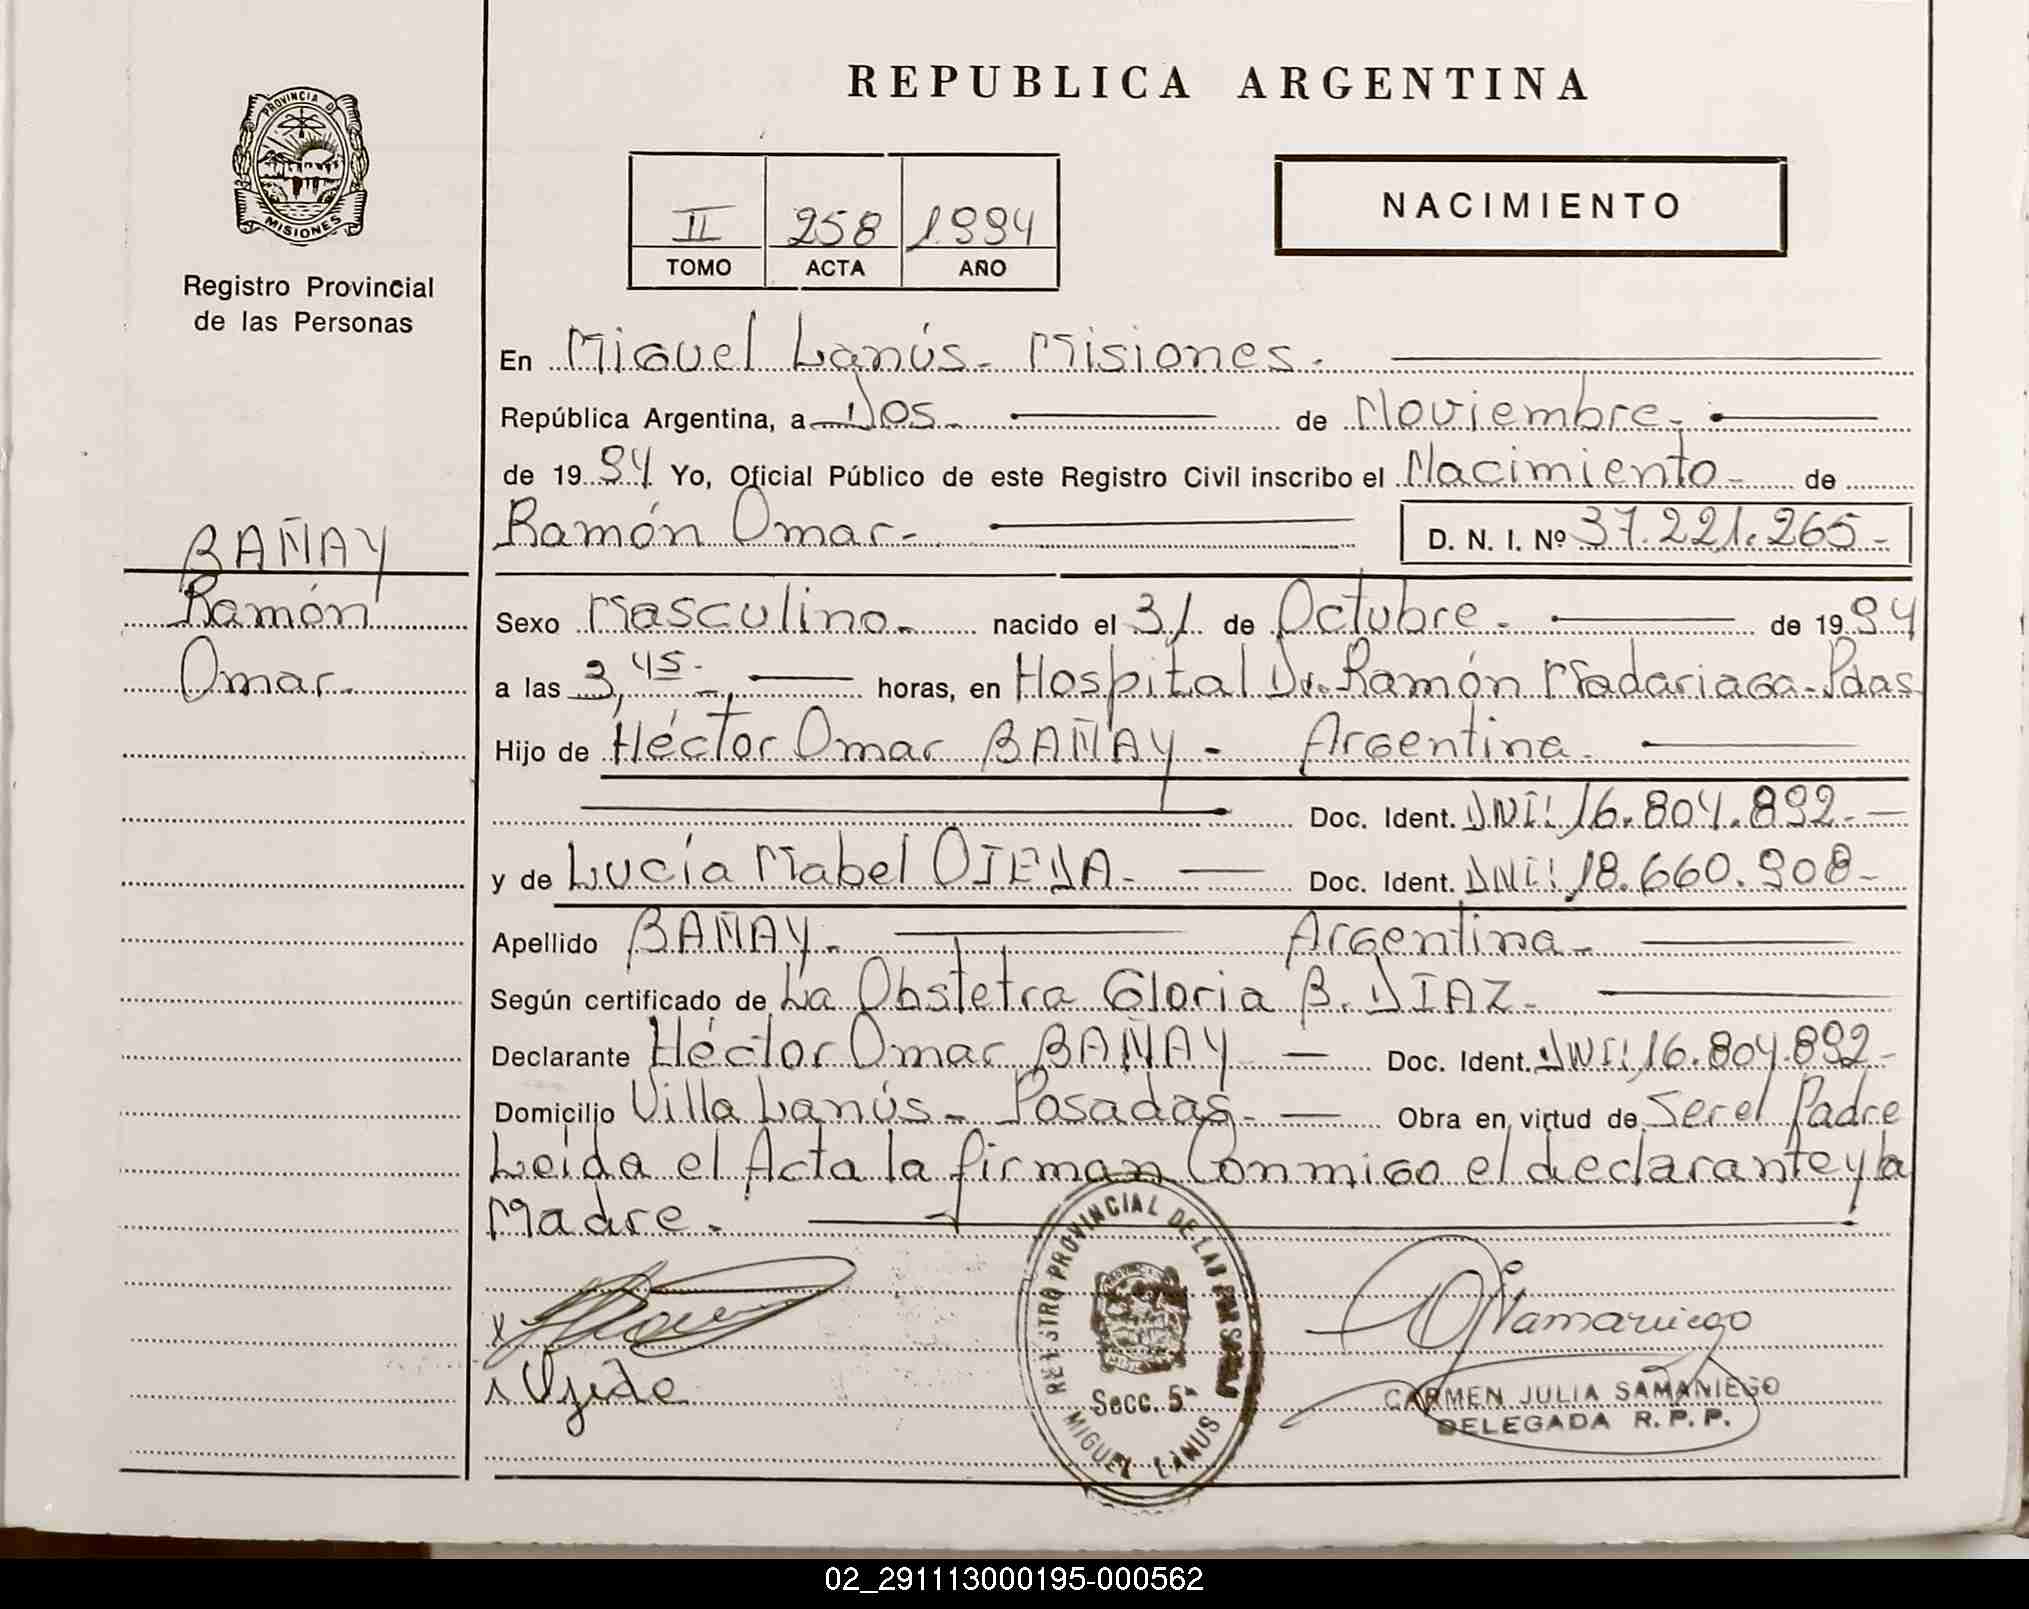 REPUBLICA ARGENTINA
PROVINCIA DE
MISIONES
Registro Provincial
de las Personas
II 258 1994
TOMO ACTA AÑO
NACIMIENTO
En Miguel Lanús - Misiones.
República Argentina, a Dos - de Noviembre -
de 1994 Yo, Oficial Público de este Registro Civil inscribo el Nacimiento - de
Ramón Omar - D. N. I. Nº 37.221.265 -
BAÑAY
Ramón
Omar.
Sexo Masculino - nacido el 31 de Octubre - de 1994
a las 3,45 - horas, en Hospital Dr. Ramón Madariaga - Pdas
Hijo de Héctor Omar BAÑAY - Argentina -
Doc. Ident. DNI: 16.804.892 -
y de Lucía Mabel OJEDA - Doc. Ident. DNI: 18.660.908 -
Apellido BAÑAY - Argentina -
Según certificado de La Obstetra Gloria B. DIAZ -
Declarante Héctor Omar BAÑAY - Doc. Ident. DNI: 16.804.892 -
Domicilio Villa Lanús - Posadas - Obra en virtud de Ser el Padre
Leida el Acta la firman Conmigo el declarante y la
Madre.
REGISTRO PROVINCIAL DE LAS PERSONAS
Secc. 5ª
MIGUEL LANUS
Ojeda
CARMEN JULIA SAMANIEGO
DELEGADA R. P. P.
02_291113000195-000562